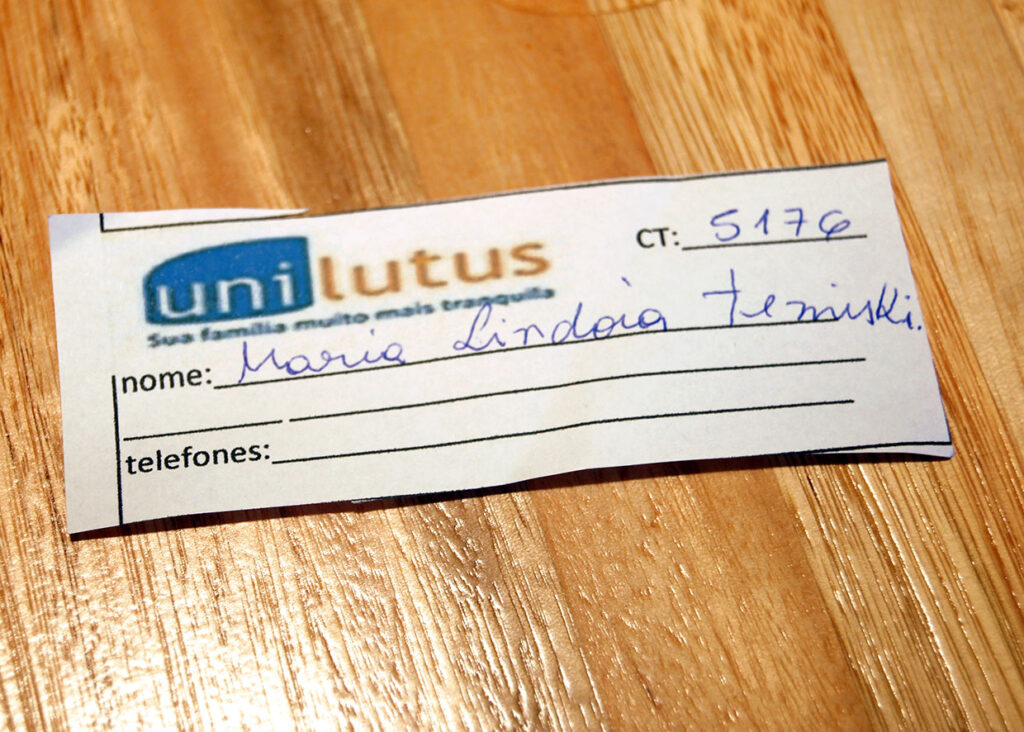 unilutus
Sua família muito mais tranquilla
CT: 5176
nome: Maria Lindoia Temiski.
telefones: